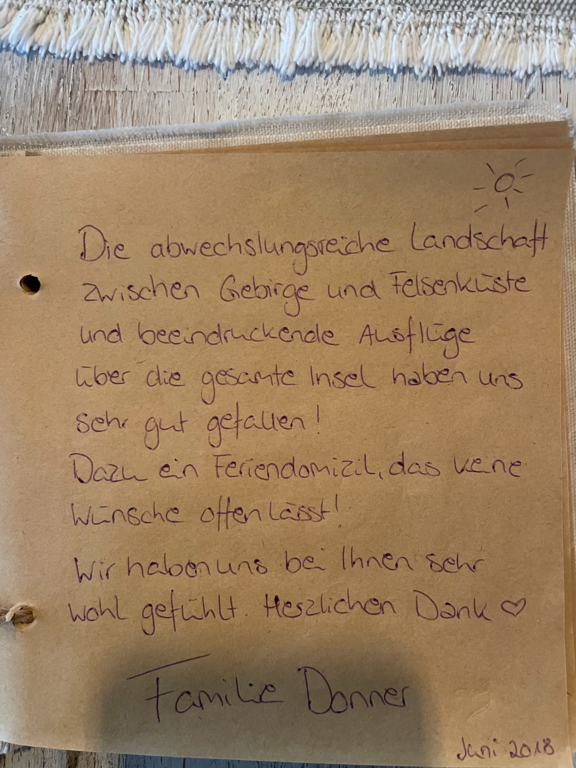 Die abwechslungsreiche Landschaft
zwischen Gebirge und Felsenküste
und beeindruckende Ausflüge
über die gesamte Insel haben uns
sehr gut gefallen!
Dazu ein Feriendomizil, das keine
Wünsche offen lässt!
Wir haben uns bei Ihnen sehr
wohl gefühlt. Herzlichen Dank ♡
Familie Donner
Juni 2018